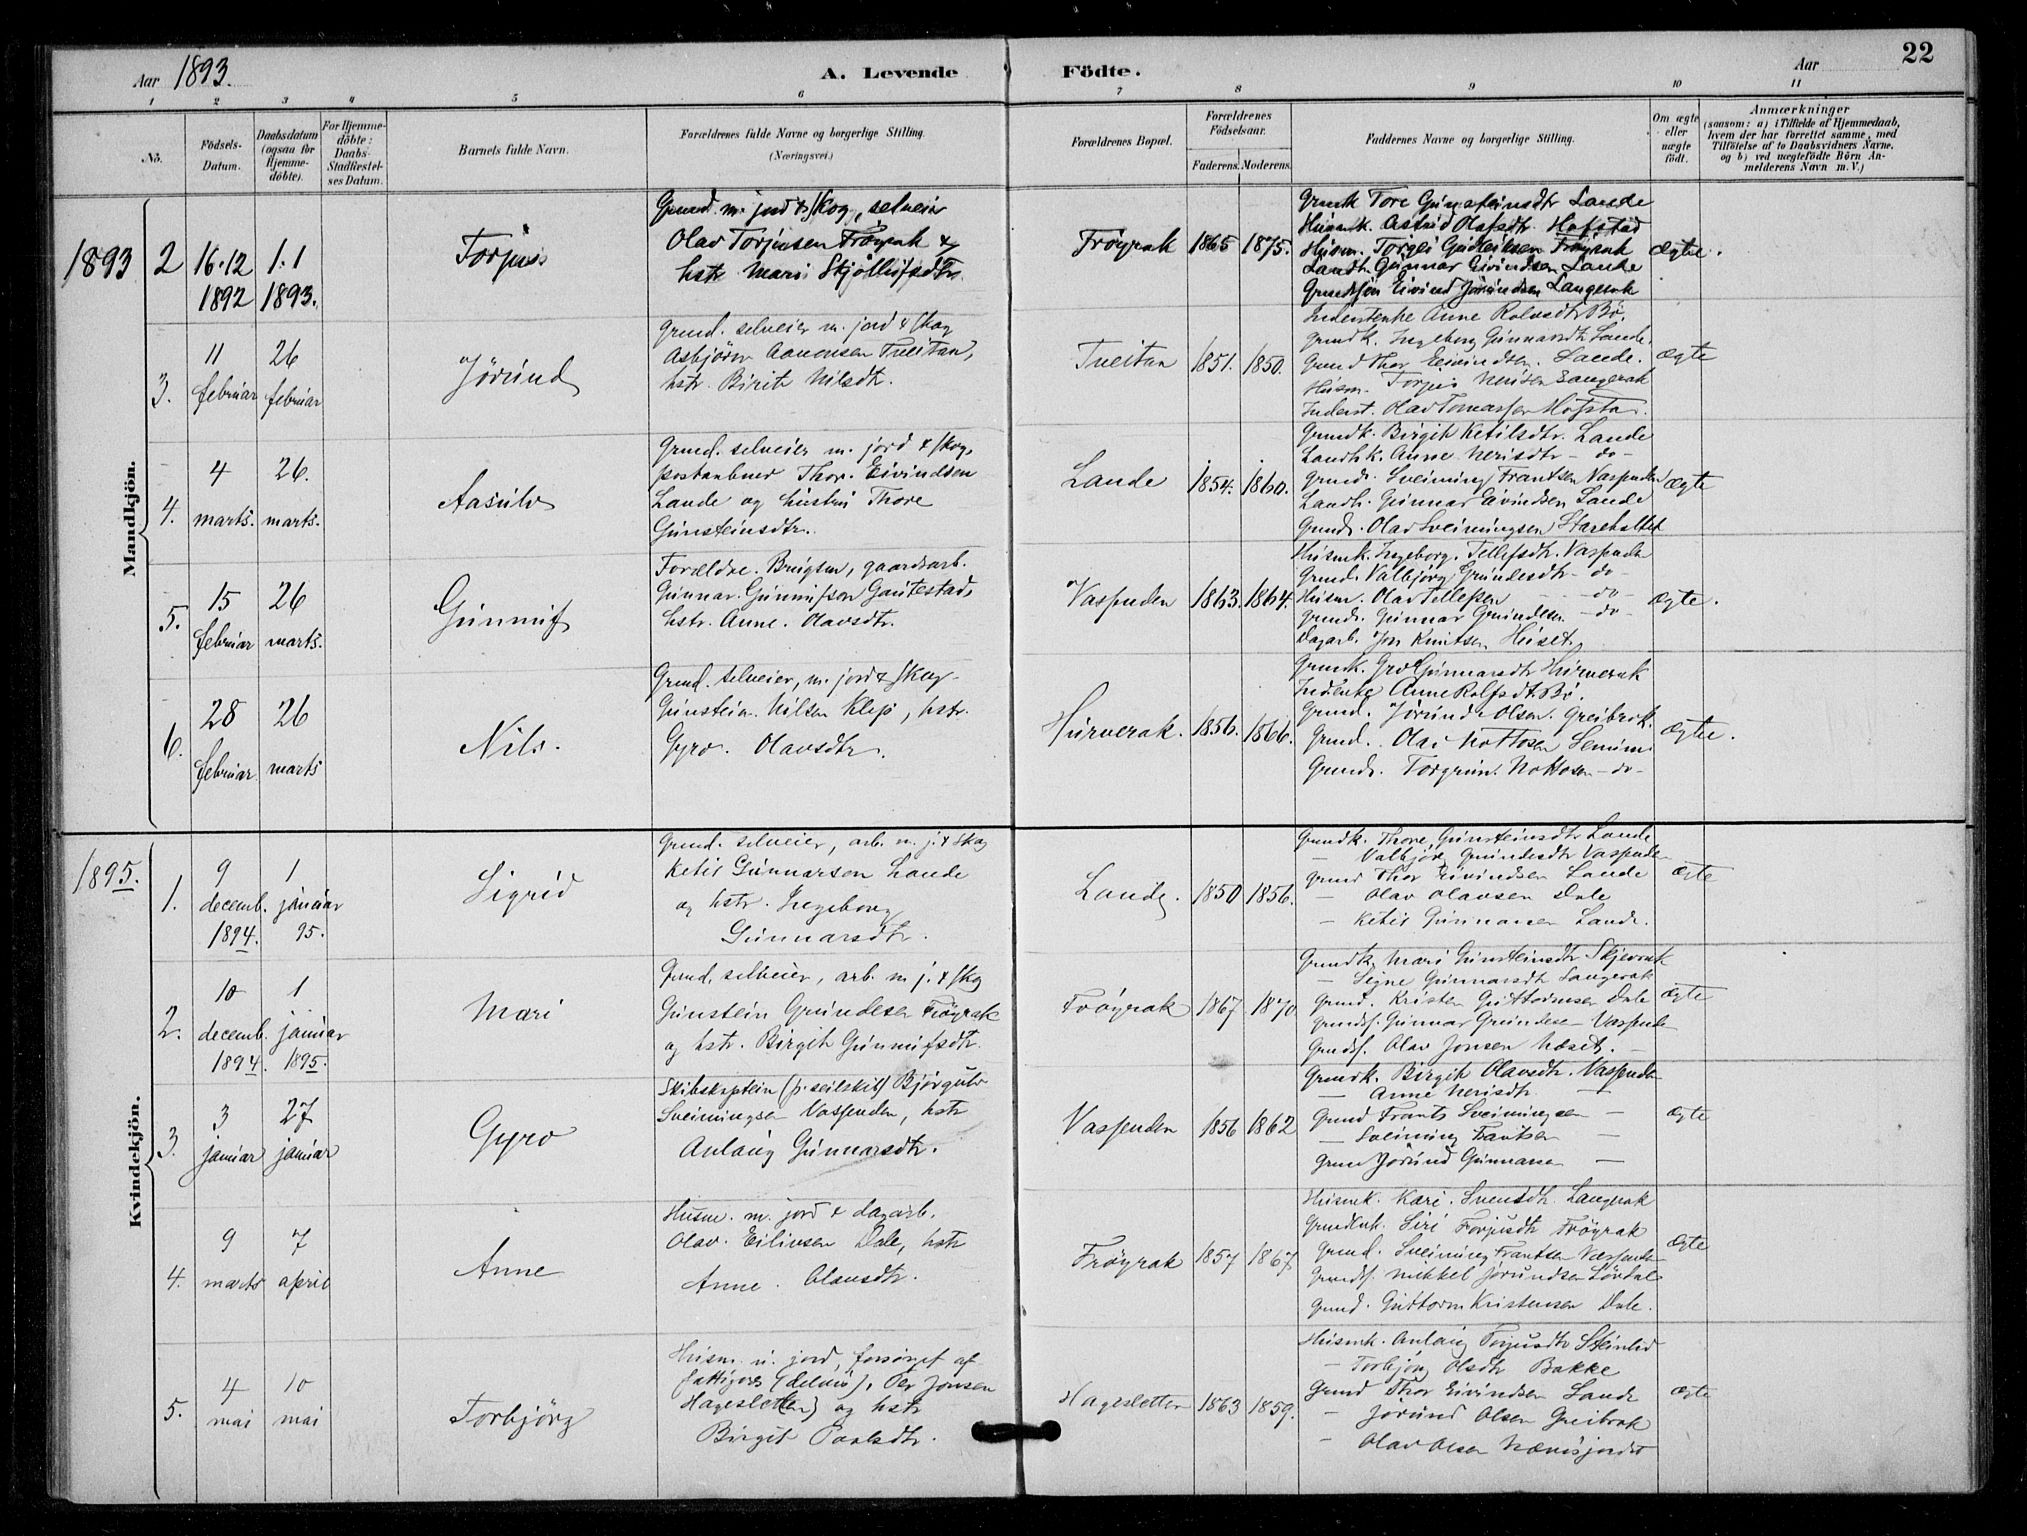 Aar 1893.
A. Levende
Födte.
Aar
22
1 2 3 4 5 6 7 8 9 10 11
No.
Födsels-Datum.
Daabsdatum (ogsaa for Hjemme-döbte).
For Hjemme-döbte: Daabs-Stadfæstel-ses Datum.
Barnets fulde Navn.
Forældrenes fulde Navne og borgerlige Stilling.
(Næringsvei.)
Forældrenes Bopæl.
Forældrenes Födselsaar.
Faderens. Moderens.
Faddernes Navne og borgerlige Stilling.
Om ægte eller uægte födt.
Anmærkninger
(saasom: a) i Tilfælde af Hjemmedaab,
hvem der har forrettet samme, med
Tilföielse af to Daabsvidners Navne,
og b) ved uægtefödte Börn An-
melderens Navn m. V.)
Mandkjön.
1893 2 16.12 1892 1.1 1893.
Torjus
Grund. m. jord & skog, selveier
Olav Torjusen Fröyrak &
hstr Mari Skjöllufsdtr.
Fröyrak 1865 1875.
Grundk Tore Gunsteinsdtr Lande
Husmk. Astrid Olafsdtr. Hofstad
Husm. Torgei Gudleiksen Fröyrak
Landh. Gunnar Eivindsen Lande
Grundsön Eivind Jörundsen Langerak
Ægte.
3. 11 februar 26 februar
Jörund
Grund. selveier m. jord & skog
Asbjörn Aanonsen Tveitan,
hstr. Birit Nilsdtr.
Tveitan 1851. 1850.
Inderstenke Anne Rolvsdtr Bö.
Grundk. Ingeborg Gunnarsdtr Lande.
Grund Thor Eivindsen. Lande.
Husm. Torjus Nerisen Langerak
Inderst. Olav Tomassen Hofstad.
Ægte
4. 4 marts. 26. marts.
Aasulv
Grund. selveier m. jord & skog,
postaabner Thor. Eivindsen
Lande og hustru Thore
Gunsteinsdtr.
Lande 1854. 1860.
Grundk. Birgit Ketilsdtr. Lande
Landhk. Anne Nerisdtr - do -
Grunds. Sveinung Frantsen Vasenden
Landh. Gunnar Eivindsen Lande
Grunds. Olav Sveinungsen
Ægte
5. 15 februar 26 marts.
Gunnuf
Forældre. Brugsm, gaardsarb.
Gunnar. Gunnufsen Gautestad,
hstr. Anne. Olavsdtr.
Vassenden 1863. 1864.
Husmk. Ingeborg. Tellefsdtr. Vassenden
Grund. Valbjörg Grundesdtr - do -
Husm. Olav Tellefsen - do -
Grunds. Gunnar Grundesen - do -
Dagarb. Jon Knutsen Huset
Ægte.
6. 28 februar 26 marts
Nils.
Grund. selveier, m. jord & skog
Gunstein. Nilsen Klep, hstr.
Gyro. Olavsdtr.
Hurverak. 1856. 1866.
Grundk. Gro Gunnarsdtr Hurverak
Indenke Anne Rolfsdtr Bö.
Grund. Jörund Olsen. Greibrok.
Grund. Olav Nottosen
Grunds. Torgrim. Nottosen - do -
Ægte.
Kvindekjön.
1895. 1. 9 decemb. 1894. 1 januar 95.
Sigrid
Grund. selveier, arb. m. j. & skog
Ketil Gunnarsen Lande
og hstr. Ingeborg
Gunnarsdtr.
Lande. 1850 1856.
Grundk. Thore, Gunsteinsdtr Lande
— Valbjörg Grundesdtr Vassenden
Grund Thor Eivindsen Lande
— Olav Olavsen Dale
— Ketil Gunnarsen Lande.
Ægte
2. 10 decemb. 1894. 1 januar 1895.
Mari
Grund. selveier, arb. m j. & skog
Gunstein Grundesen Fröyrak
og hstr. Birgit Gunnufsdtr.
Fröyrak 1867 1870
Grundk. Mari Gunsteinsdtr
— Signe Gunnarsdtr Langerak
Grund. Kristen Guttormsen Dale
Grundsf. Gunnar Grundesen Vassenden
Grundsf. Olav Jonsen Næset.
Ægte
3. 3 januar 27 januar
Gyro
Skibskaptein (p. seilskib) Björgulv
Sveinungsen Vassenden, hstr
Anlaug Gunnarsdtr.
Vassenden 1856 1862
Grundk. Birgit Olavsdtr. Vassenden
— Anne Nerisdtr —
Grund Frants Sveinungsen —
— Sveinung Frantsen —
Grund Jörund Gunnarsen —
Ægte
4. 9 marts 7 april
Anne
Husm. m. jord & dagarb.
Olav. Eilivsen Dale, hstr
Anne. Olavsdtr.
Fröyrak 1857 1867
Husmk. Kari. Svensdtr. Langerak
Grundenk. Siri Torjusdtr Fröyrak
Grund. Sveinung Frantsen Vassenden
Grundsf. Mikkel Jörundsen Lövdal
Grund. Guttorm Kristensen Dale.
Ægte
5. 4 mai 10 mai
Torbjörg
Husm. u. jord, forsörget af
fattigv. (delvis), Per Jonsen
Hagesletten) og hstr
Birgit Paalsdtr.
Hagesletten 1863 1859.
Husmk. Anlaug Torjusdtr
— Torbjörg Olsdtr Bakke
Grund Thor Eivindsen Lande
— Jörund Olsen Greibrok
— Olav Olsen
Ægte